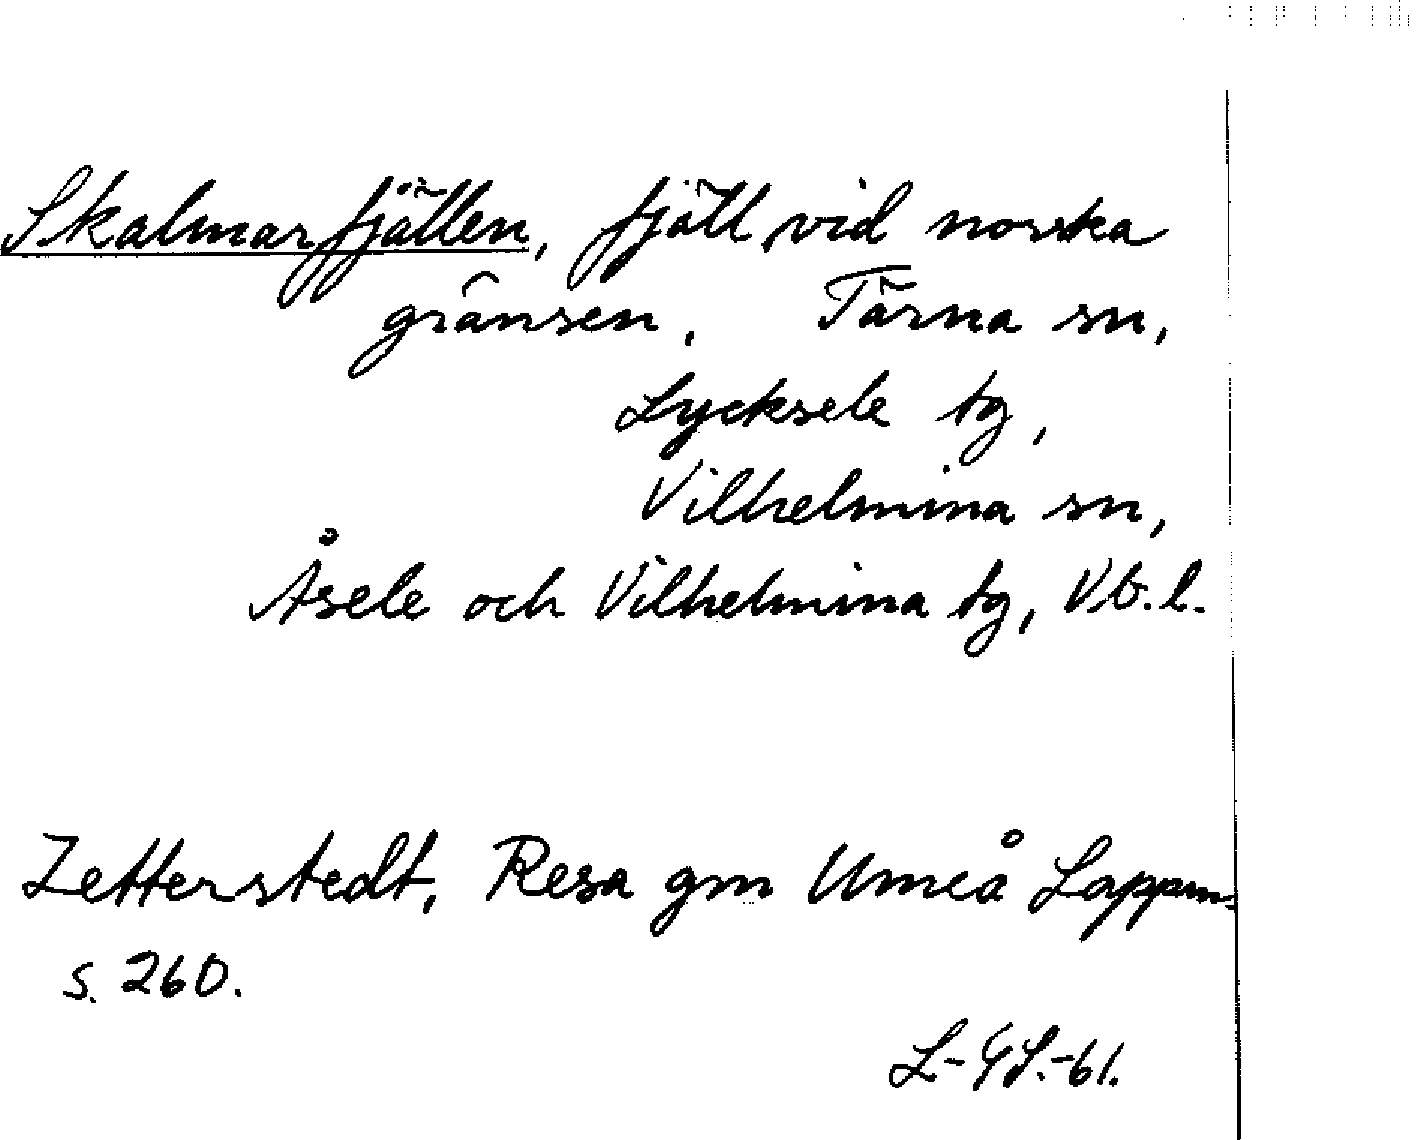 Skalmarfjällen, fjäll vid norska
gränsen. Tärna sn,
Lycksele tg,
Vilhelmina sn,
Åsele och Vilhelmina tg, Vb. l.
Zetterstedt, Resa gm Umeå Lappm.
s. 260.